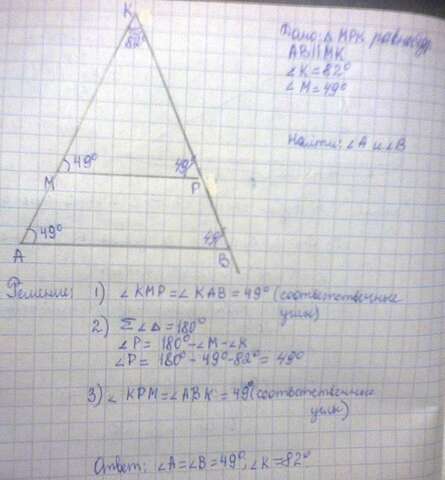 K
82°
Дано: Δ МРК равнобедр.
AB||MK
∠K = 82°
∠M = 49°
Найти: ∠A и ∠B
49° 49°
M P
49° 49°
A B
Решение: 1) ∠KMP = ∠KAB = 49° (соответственные
углы)
2) Σ∠Δ = 180°
∠P = 180° - ∠M - ∠K
∠P = 180° - 49° - 82° = 49°
3) ∠KPM = ∠ABK = 49° (соответственные
углы)
Ответ: ∠A = ∠B = 49°, ∠K = 82°.